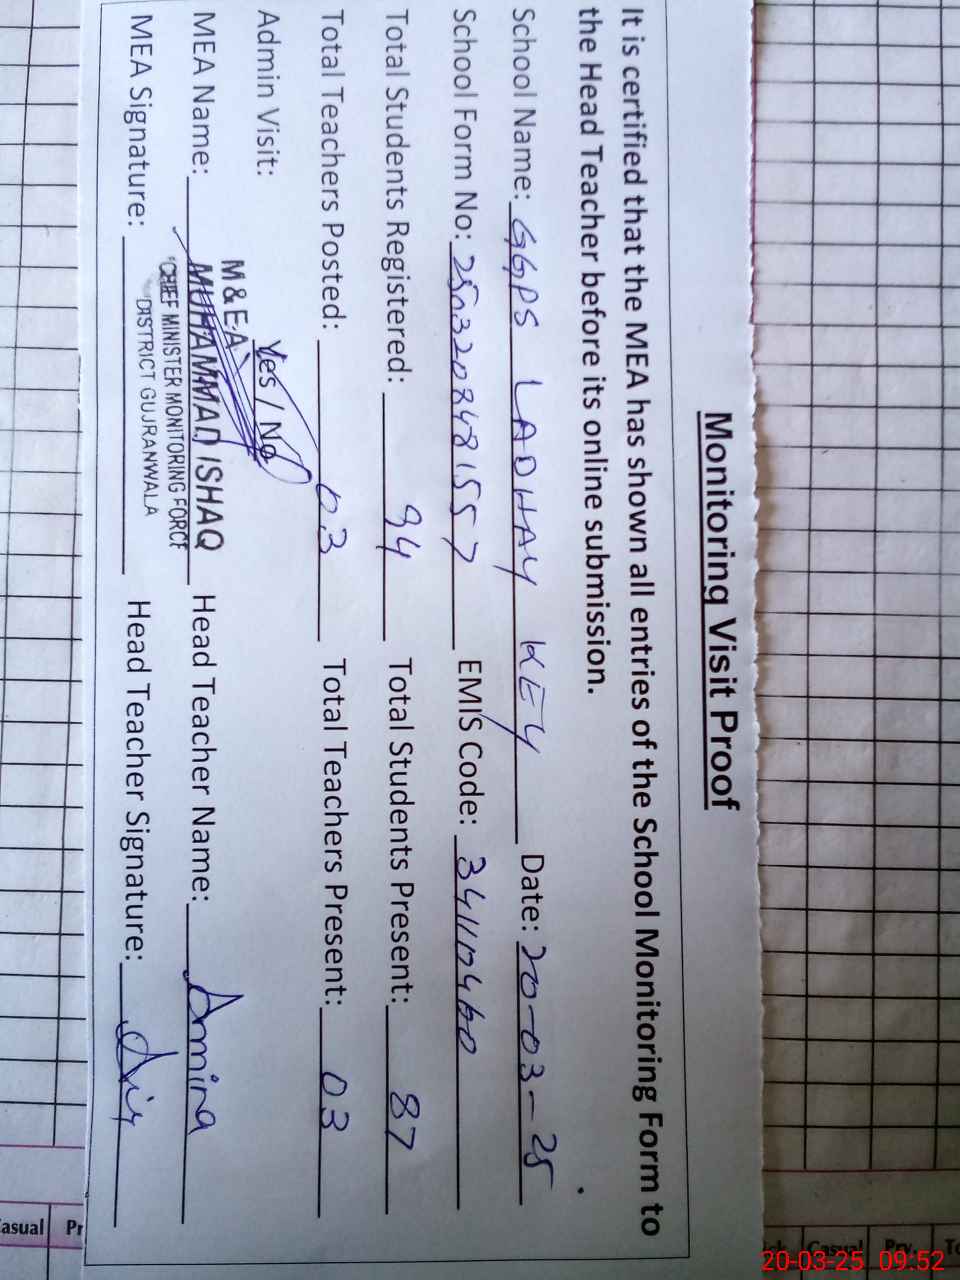 Monitoring Visit Proof
It is certified that the MEA has shown all entries of the School Monitoring Form to
the Head Teacher before its online submission.
School Name: GGPS LADHAY KEY Date: 20-03-25
School Form No: 250320848157 EMIS Code: 34110460
Total Students Registered: 94 Total Students Present: 87
Total Teachers Posted: 03 Total Teachers Present: 03
Admin Visit: Yes / No
M & E A
MEA Name: MUHAMMAD ISHAQ Head Teacher Name: Amina
CHIEF MINISTER MONITORING FORCE
DISTRICT GUJRANWALA
MEA Signature: Head Teacher Signature:
asual Pr
Casual Pry. To
20-03-25 09:52